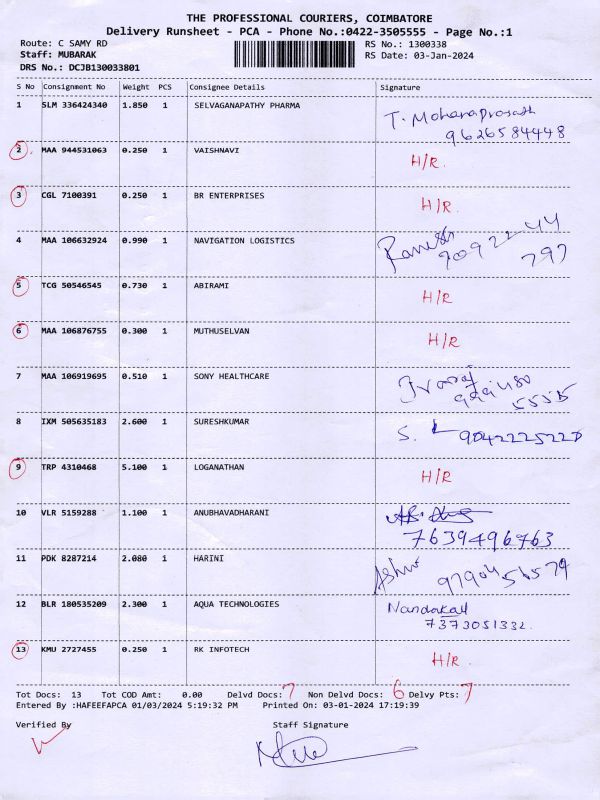 THE PROFESSIONAL COURIERS, COIMBATORE
Delivery Runsheet - PCA - Phone No.:0422-3505555 - Page No.:1
Route: C SAMY RD RS No.: 1300338
Staff: MUBARAK RS Date: 03-Jan-2024
DRS No.: DCJB130033801
S No Consignment No Weight PCS Consignee Details Signature
1 SLM 336424340 1.850 1 SELVAGANAPATHY PHARMA T. Mohanaprasath
9626584448
2 MAA 944531063 0.250 1 VAISHNAVI H/R.
3 CGL 7100391 0.250 1 BR ENTERPRISES H/R.
4 MAA 106632924 0.990 1 NAVIGATION LOGISTICS Ramesh
90922 44
797
5 TCG 50546545 0.730 1 ABIRAMI H/R
6 MAA 106876755 0.300 1 MUTHUSELVAN H/R
7 MAA 106919695 0.510 1 SONY HEALTHCARE
8 IXM 505635183 2.600 1 SURESHKUMAR S.
9 TRP 4310468 5.100 1 LOGANATHAN H/R
10 VLR 5159288 1.100 1 ANUBHAVADHARANI
7639496763
11 PDK 8287214 2.080 1 HARINI Ashw
12 BLR 180535209 2.300 1 AQUA TECHNOLOGIES
7373051332.
13 KMU 2727455 0.250 1 RK INFOTECH H/R.
Tot Docs: 13 Tot COD Amt: 0.00 Delvd Docs: 7 Non Delvd Docs: 6 Delvy Pts: 7
Entered By :HAFEEFAPCA 01/03/2024 5:19:32 PM Printed On: 03-01-2024 17:19:39
Verified By Staff Signature